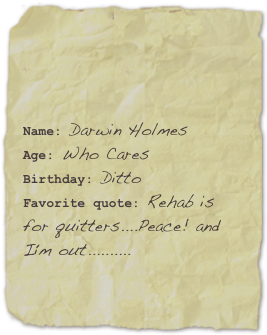 Name: Darwin Holmes
Age: Who Cares
Birthday: Ditto
Favorite quote: Rehab is
for quitters....Peace! and
I'm out..........